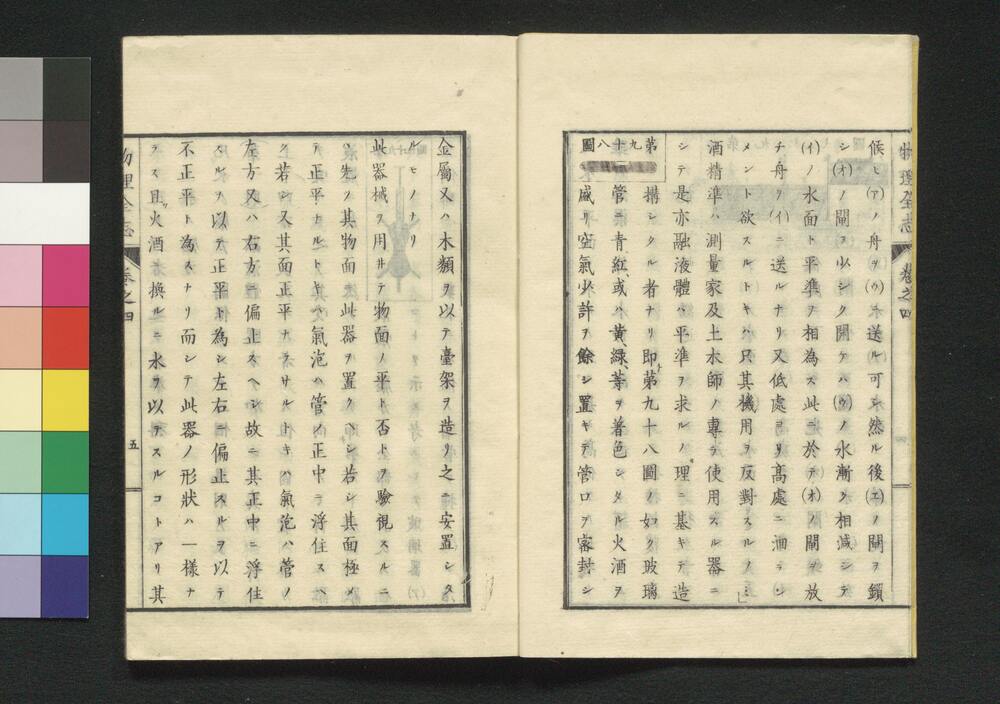 物理全志 卷之四
候ヒ(ア)ノ舟ヲ(ウ)ニ送ル可シ然ル後(エ)ノ閘ヲ鎖
シ(オ)ノ閘ヲ少シク開ケハ(ウ)ノ水漸ク相減シテ
(イ)ノ水面ト平準ヲ相為ス此ニ於テ(オ)ノ閘ヲ放
チ舟ヲ(イ)ニ送ルナリ又低處ヨリ高處ニ洄ラシ
メント欲スルトキハ只其機用ヲ反對スルノミ
酒精準ハ測量家及土木師ノ專ラ使用スル器ニ
シテ是亦融液體ハ平準ヲ求ルノ理ニ基キテ造
構シタル者ナリ即第九十八圖ノ如ク玻璃
管ニ青紅或ハ黄緑等ヲ着色シタル火酒ヲ
盛リ空氣少許ヲ餘シ置キテ管口ヲ密封シ
第九十八圖
金屬又ハ木類ヲ以テ臺架ヲ造リ之ニ安置シタ
ルモノナリ
此器械ヲ用井テ物面ノ平ト否トヲ驗視スルニ
ハ先ツ其物面ニ此器ヲ置クヘシ若シ其面極メ
テ正平ナルトキハ氣泡ハ管ノ正中ニ浮住スヘ
シ若シ又其面正平ナラサルトキハ氣泡ハ管ノ
左方又ハ右方ニ偏止スヘシ故ニ其正中ニ浮住
スルヲ以テ正平ト為シ左右ニ偏止スルヲ以テ
不正平ト為スナリ而シテ此器ノ形狀ハ一様ナ
ラス且火酒ニ換ルニ水ヲ以テスルコトアリ其
物理全志 卷之四 五